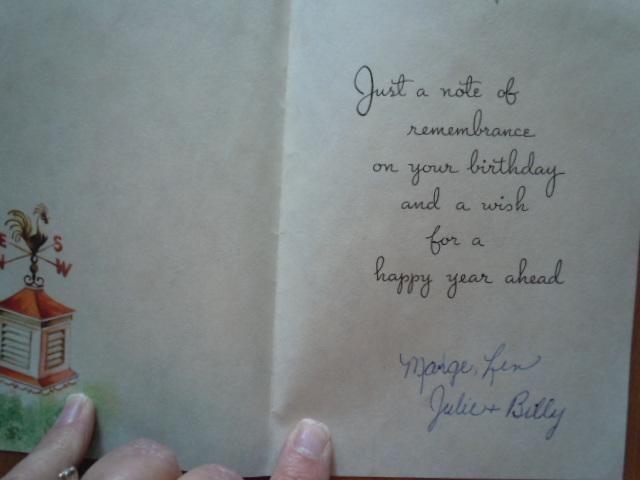 E S
N W
Just a note of
remembrance
on your birthday
and a wish
for a
happy year ahead
Marge, Len
Julie + Billy